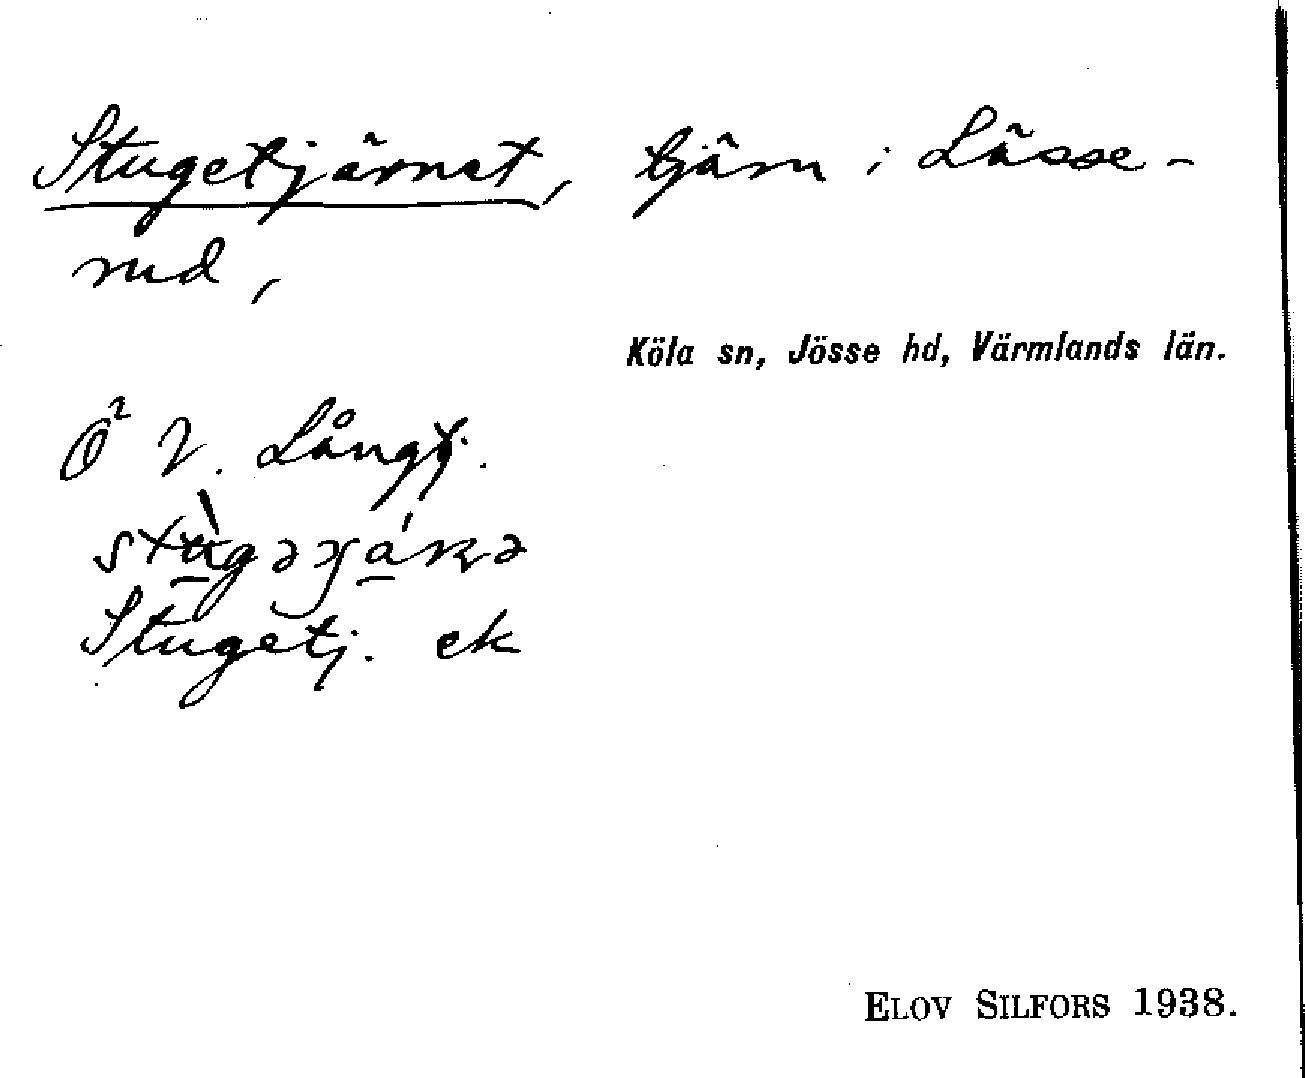 Stugetjärnet, tjärn i Lässe-
rud,
Köla sn, Jösse hd, Värmlands län.
Ö² V. Långtj.
Stugetj. ek
ELOV SILFORS 1938.